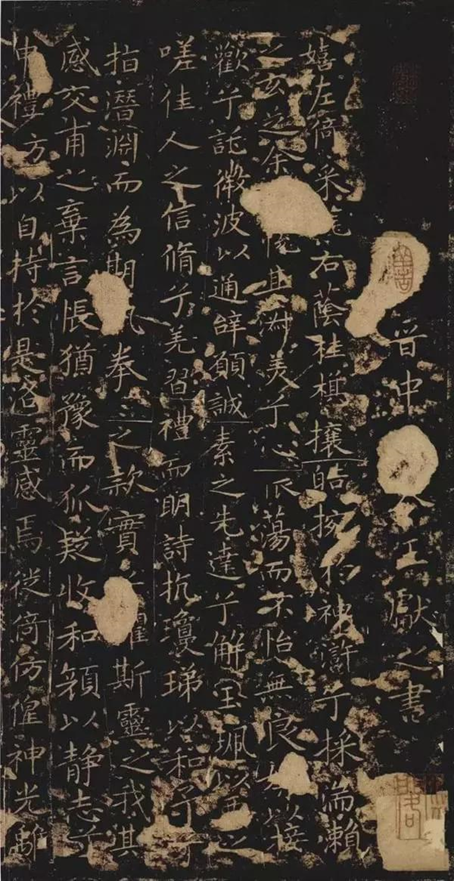 晋中令王獻之書
嬉左倚采旄右蔭桂棋攘皓捥於神滸兮採湍瀨
之玄之余悅其淑美兮心振蕩而不怡無良以接
歡兮託微波以通辭願誠素之先達兮解玉珮以要之
嗟佳人之信脩兮羌習禮而明詩抗瓊珶以和予兮
指潛淵而為期執拳〻之款實懼斯靈之我其
感交甫之棄言悵猶豫而狐疑收和顏以靜志兮
申禮方以自持於是洛靈感焉徙倚仿偟神光離